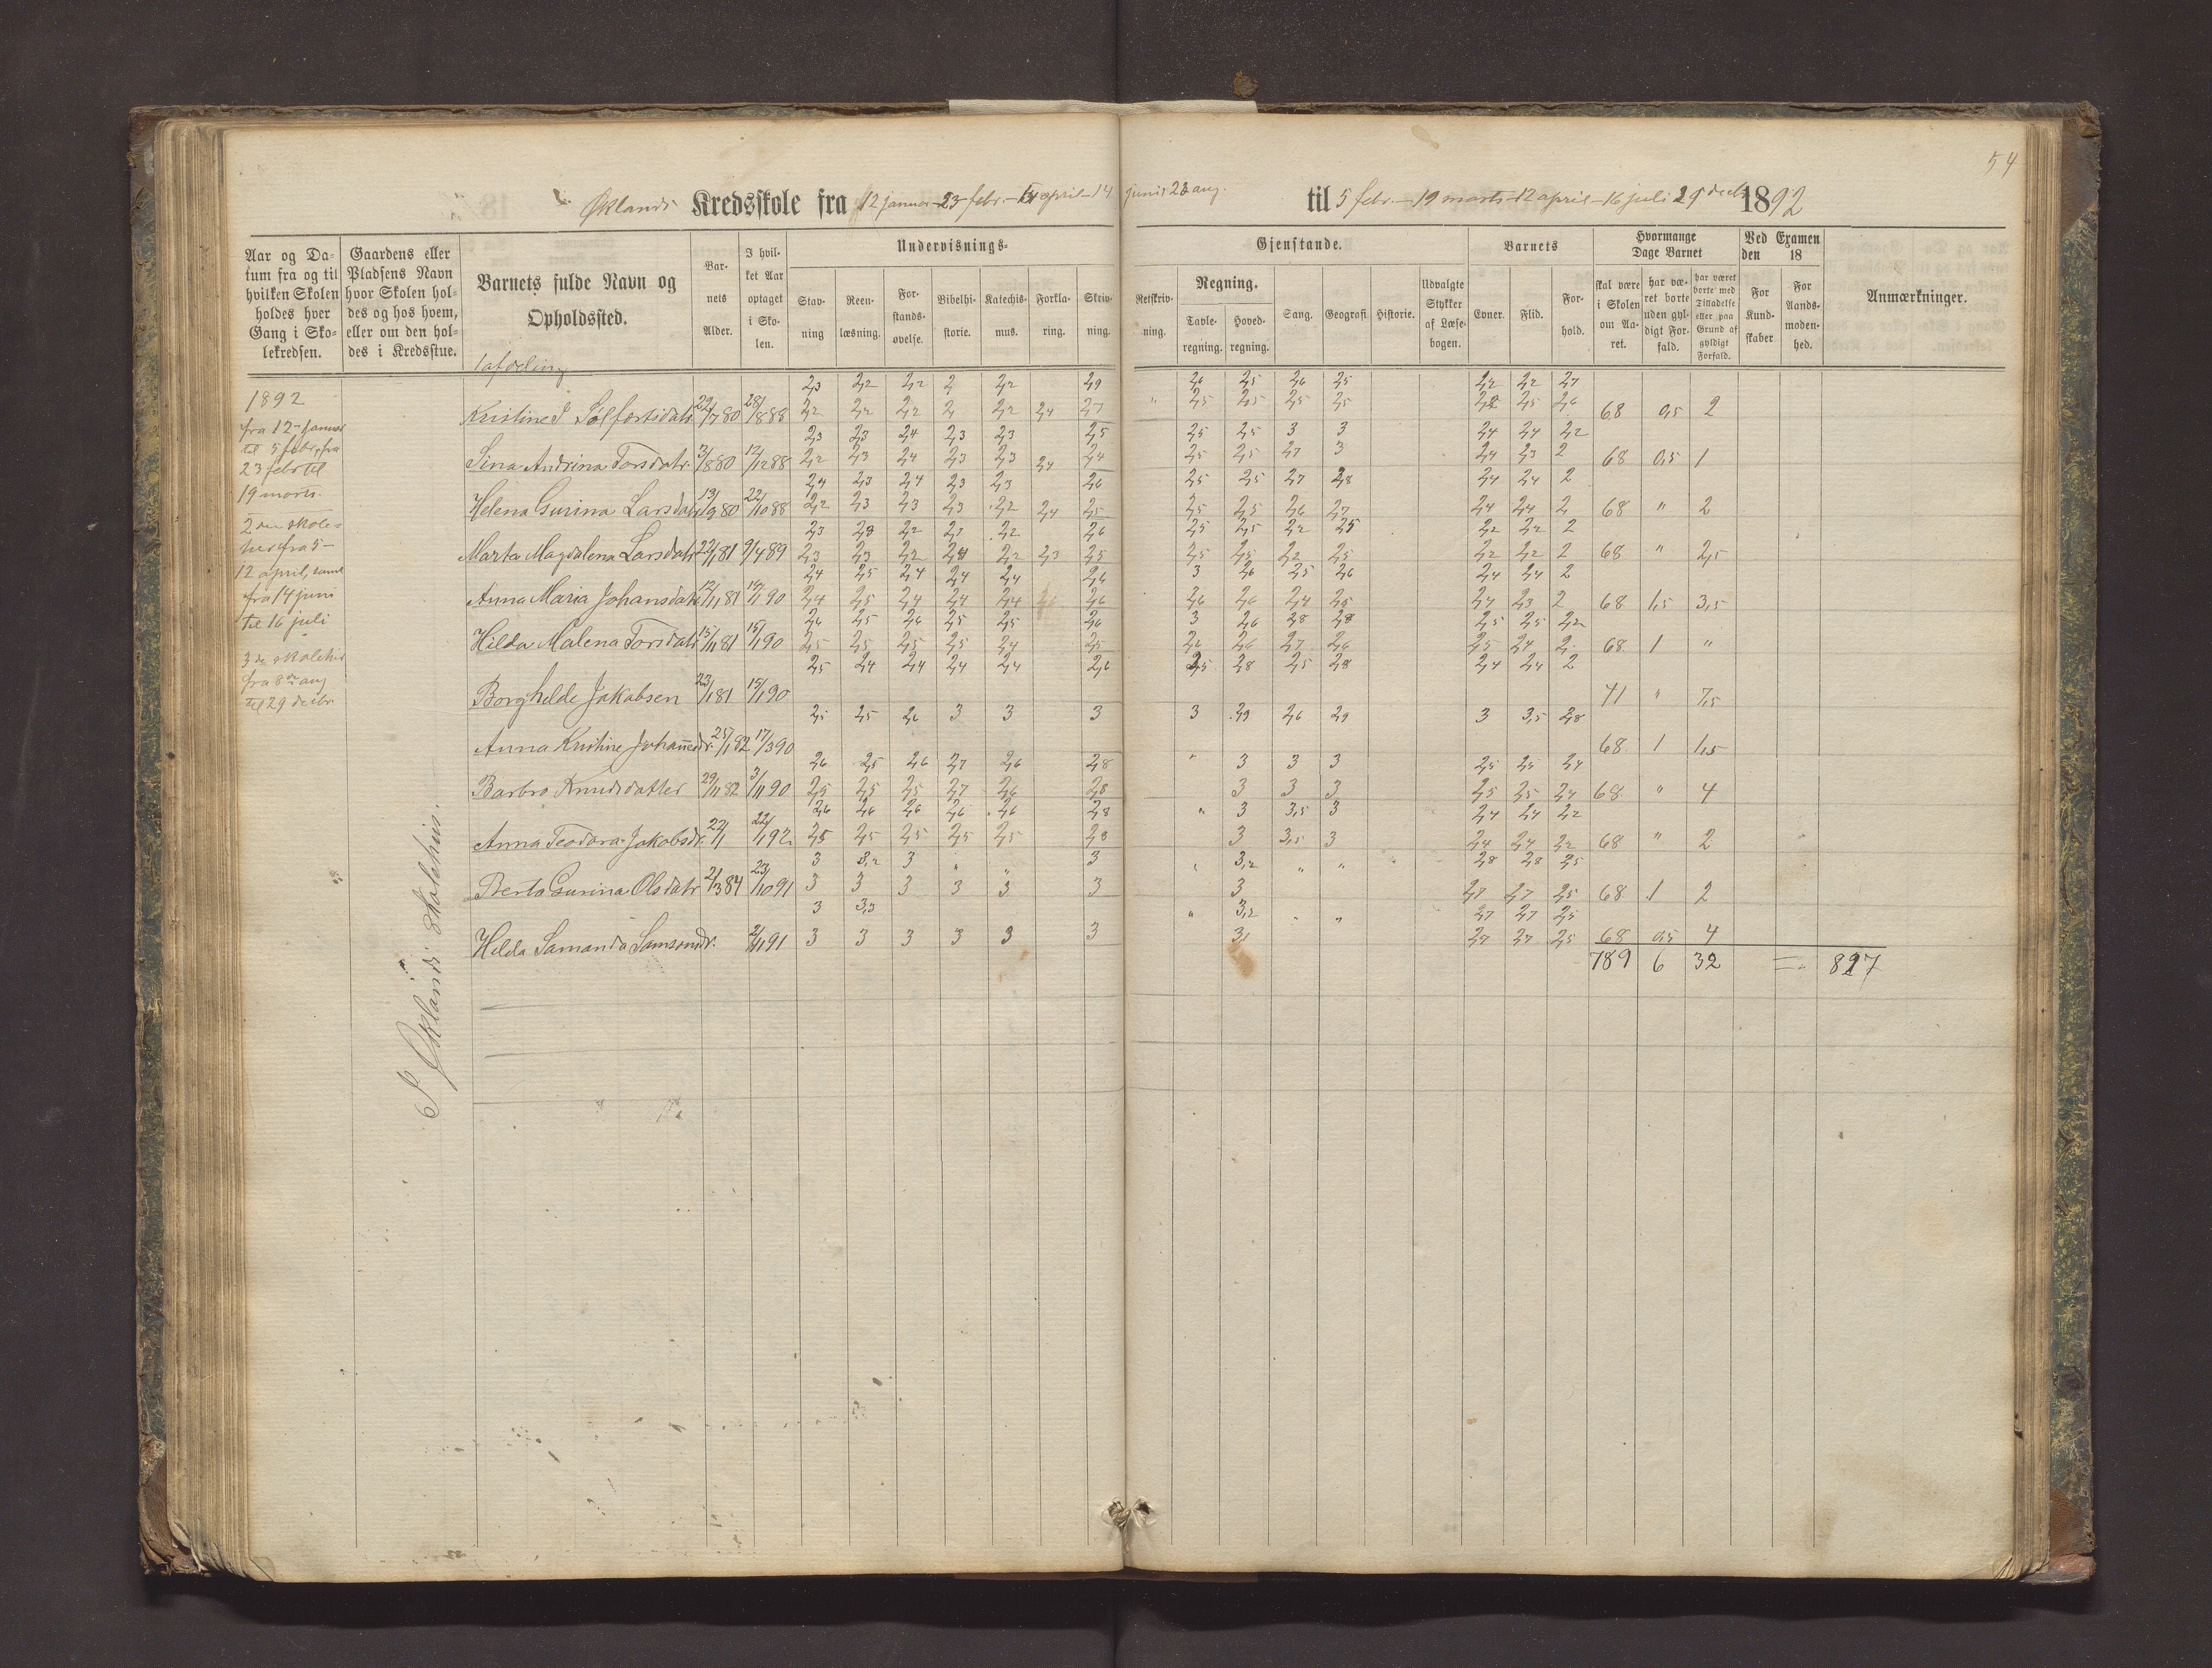 54
Øklands Kredsskole fra 12 januar - 23 febr. - 5 april - 14 juni 23 aug. til 5 febr. - 19 marts - 12 april - 16 juli 29 decbr 1892
Aar og Da-
tum fra og til
hvilken Skolen
holdes hver
Gang i Sko-
lekredsen.
Gaardens eller
Pladsens Navn
hvor Skolen hol-
des og hos hvem,
eller om den hol-
des i Kredsstue.
Barnets fulde Navn og
Opholdssted.
Bar-
nets
Alder.
I hvil-
ket Aar
optaget
i Sko-
len.
Undervisnings-
Stav-
ning
Reen-
læsning.
For-
stands-
øvelse.
Bibelhi-
storie.
Katechis-
mus.
Forkla-
ring.
Skriv-
ning.
Gjenstande.
Retskriv-
ning.
Regning.
Tavle-
regning.
Hoved-
regning.
Sang.
Geografi.
Historie.
Udvalgte
Stykker
af Læse-
bogen.
Barnets
Evner.
Flid.
For-
hold.
Hvormange
Dage Barnet
skal være
i Skolen
om Aa-
ret.
har væ-
ret borte
uden gyl-
digt For-
fald.
har været
borte med
Tilladelse
eller paa
Grund af
gyldigt
Forfald.
Ved Examen
den 18
For
Kund-
skaber
For
Aands-
moden-
hed.
Anmærkninger.
1 afdeling
1892
fra 12 januar
til 5 febr, fra
23 febr til
19 marts.
2den skole-
fra 5 -
12 april, samt
fra 14 juni
til 16 juli
fra 8de aug
til 29 decbr
I Øklands Skolehus.
2,3 2,2 2,2 2 2,2 2,9 2,6 2,5 2,6 2,5 2,2 2,2 2,7
Kristine J Solfestsdatr 22/7 80 28/8 88 2,2 2,2 2,2 2 2,2 2,4 2,7 " 2,5 2,5 2,5 2,5 2,2 2,5 2,6 68 0,5 2
2,3 2,3 2,4 2,3 2,3 2,5 2,5 2,5 3 3 2,4 2,4 2,2
Sina Andrina Torsdatr. 3/8 80 12/12 88 2,2 2,3 2,4 2,3 2,3 2,4 2,4 2,5 2,5 2,7 3 2,4 2,3 2 68 0,5 1
2,4 2,3 2,4 2,3 2,3 2,6 2,5 2,5 2,7 2,8 2,4 2,4 2
Helena Gurina Larsdatr 13/9 80 22/10 88 2,2 2,3 2,3 2,3 2,2 2,4 2,5 2,5 2,5 2,6 2,7 2,4 2,4 2 68 " 2
2,3 2,3 2,2 2,1 2,2 2,6 2,5 2,5 2,2 2,5 2,2 2,2 2
Marta Magdalena Larsdatr 22/1 81 9/4 89 2,3 2,3 2,2 2,1 2,2 2,3 2,5 2,5 2,5 2,2 2,5 2,2 2,2 2 68 " 2,5
2,4 2,5 2,4 2,4 2,4 2,6 3 2,6 2,5 2,6 2,4 2,4 2
Anna Maria Johansdatr 12/11 81 14/1 90 2,4 2,5 2,4 2,4 2,4 2,6 2,6 2,6 2,4 2,5 2,4 2,3 2 68 1,5 3,5
2,6 2,5 2,6 2,5 2,5 2,6 3 2,6 2,8 2,8 2,5 2,5 2,2
Hilda Malena Torsdatr 15/11 81 15/1 90 2,5 2,5 2,5 2,5 2,4 2,5 2,6 2,6 2,7 2,6 2,5 2,4 2 68 1 "
2,5 2,4 2,4 2,4 2,4 2,6 2,5 2,8 2,5 2,8 2,4 2,4 2
Borghilde Jakobsen 23/1 81 15/1 90 71 " 7,5
2,5 2,5 2,6 3 3 3 3 2,9 2,6 2,9 3 3,5 2,8
Anna Kristine Johannesdr. 25/1 82 17/3 90 68 1 1,5
2,6 2,5 2,6 2,7 2,6 2,8 " 3 3 3 2,5 2,5 2,4
Barbro Knudsdatter 29/11 82 3/11 90 2,5 2,5 2,5 2,7 2,6 2,8 3 3 3 2,5 2,5 2,4 68 " 4
2,6 2,6 2,6 2,6 2,6 2,8 " 3 3,5 3 2,4 2,4 2,2
Anna Teodora Jakobsdr. 22/1 22/1 92 2,5 2,5 2,5 2,5 2,5 2,8 3 3,5 3 2,4 2,4 2,2 68 " 2
3 3,2 3 " " 3 " 3,2 " " 2,8 2,8 2,5
Berta Gurina Olsdatr 2/3 84 23/10 91 3 3 3 3 3 3 3 2,7 2,7 2,5 68 1 2
3 3,3 " 3,2 " " 2,7 2,7 2,5
Hilda Samanda Samsonsdr. 2/11 91 3 3 3 3 3 3 3,1 2,7 2,7 2,5 68 0,5 4
789 6 32 = 827